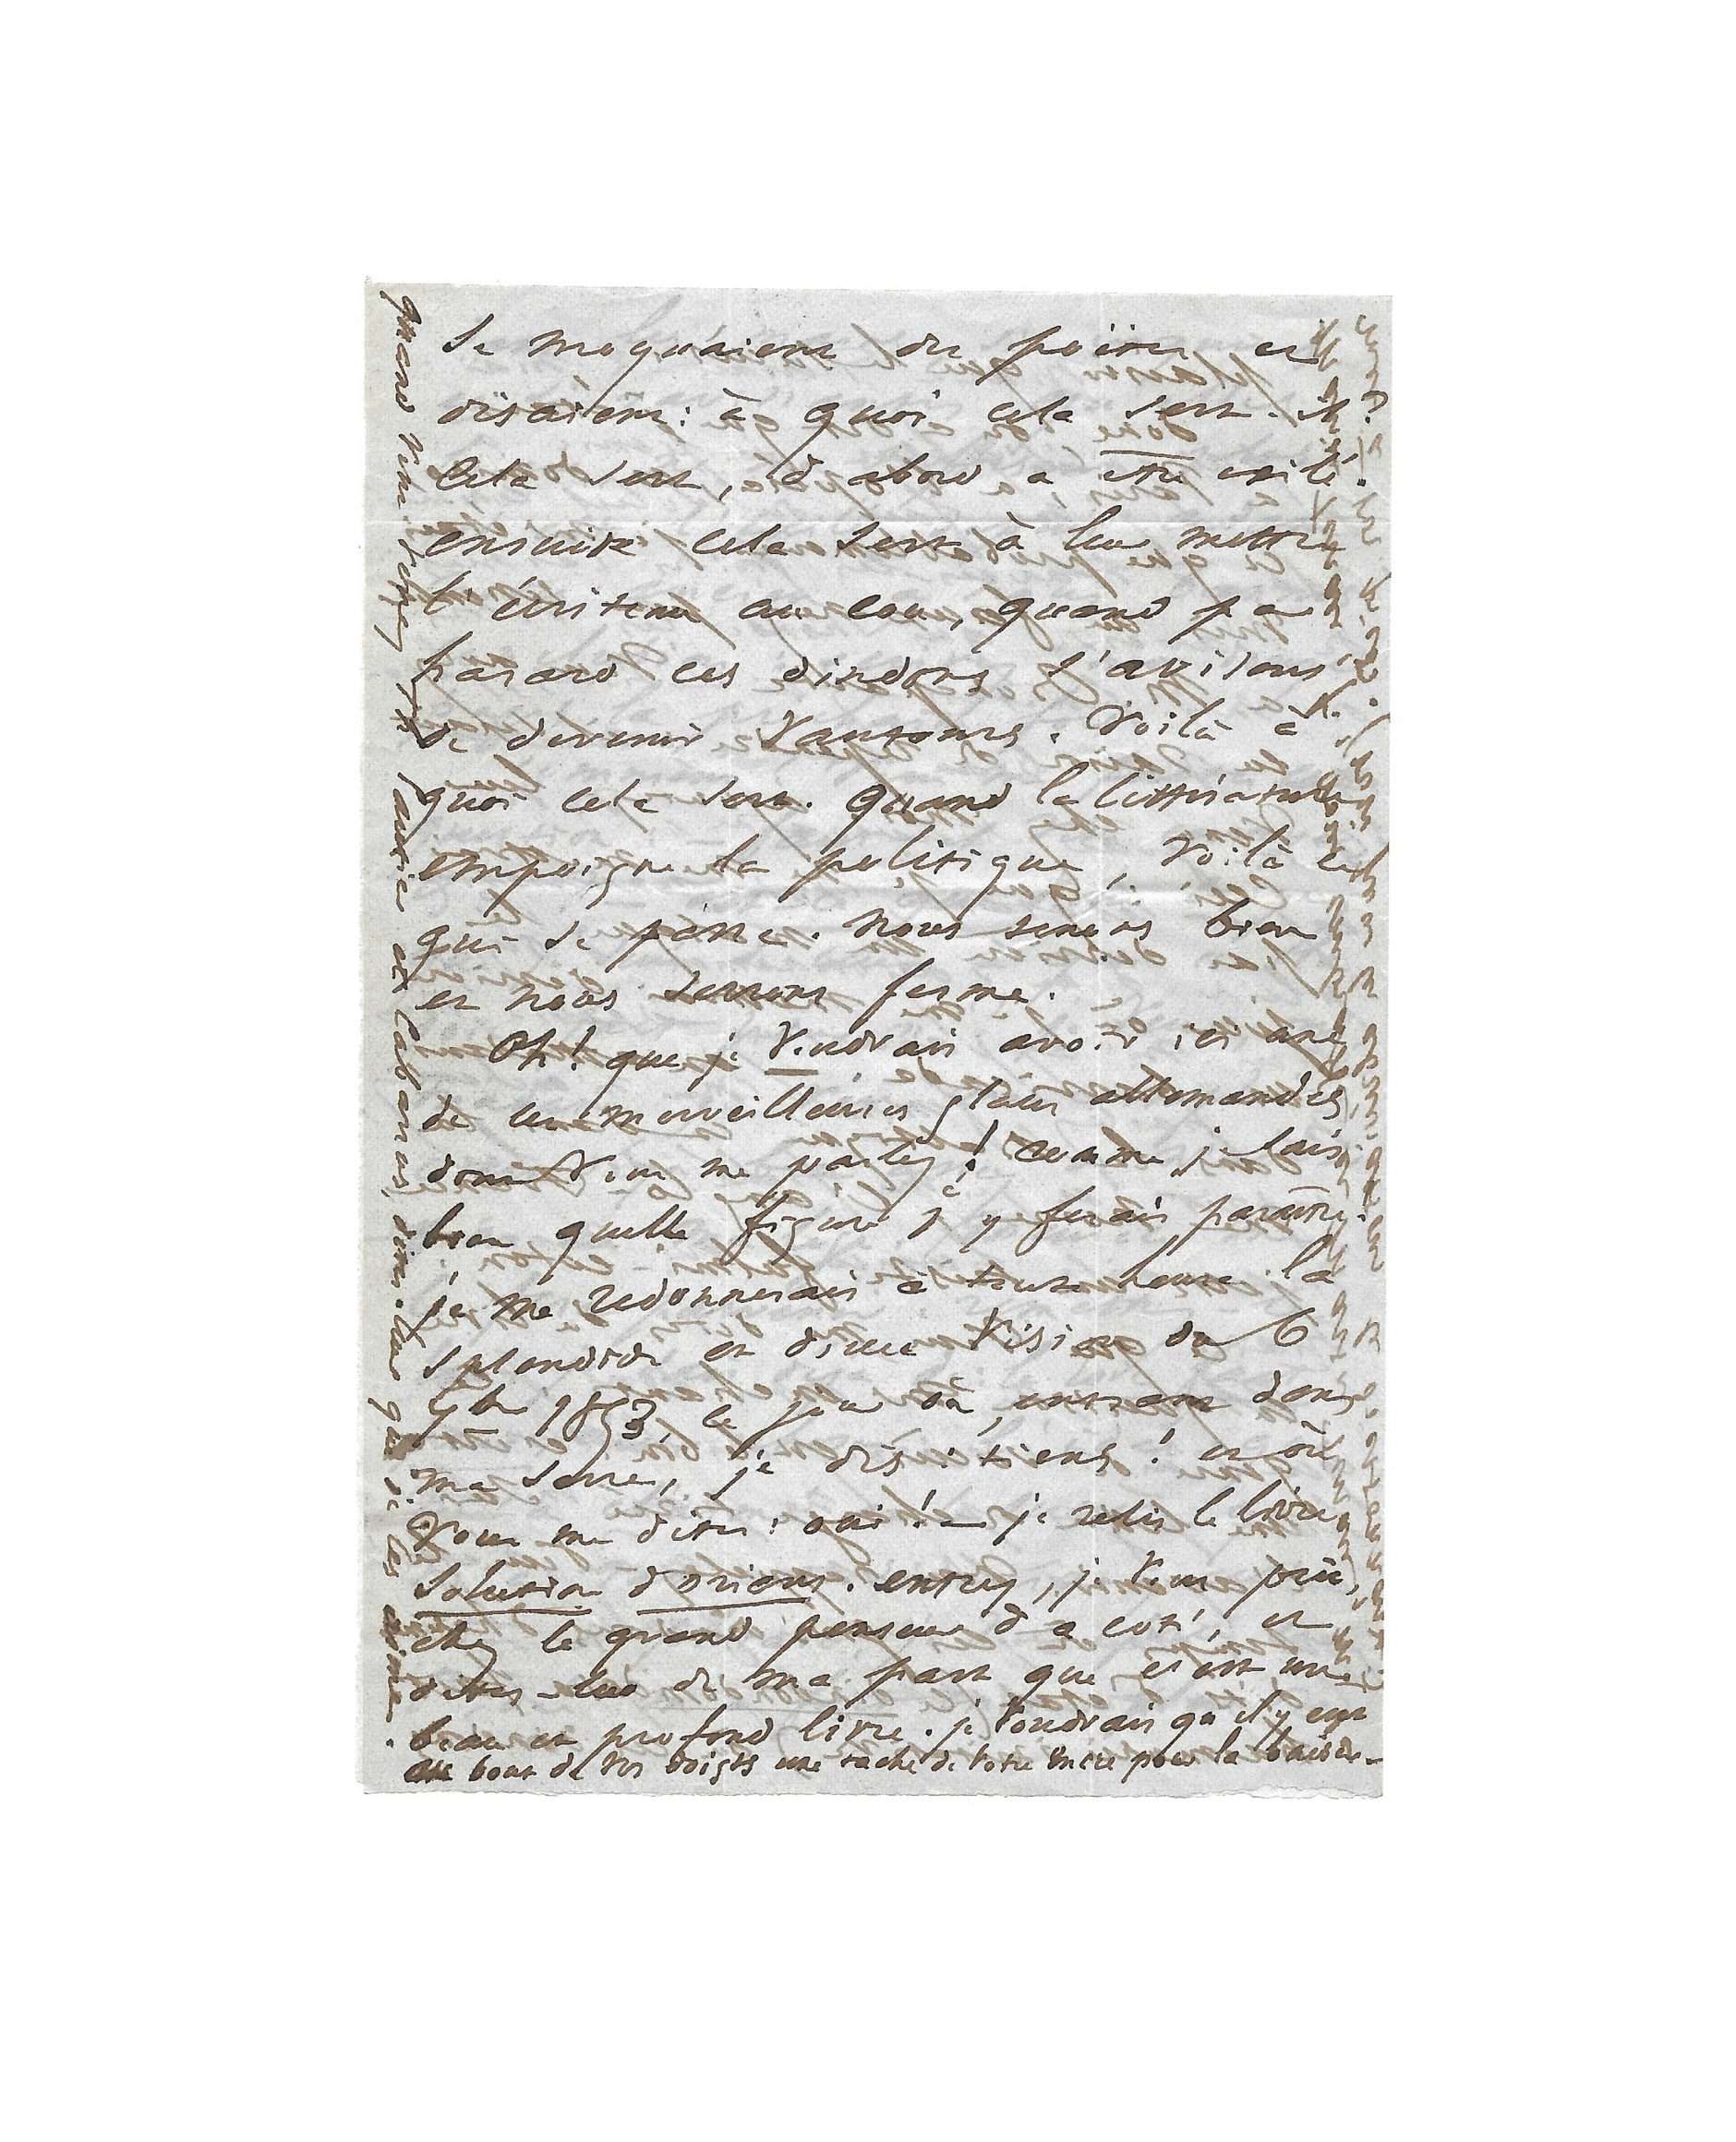 se moquaient du poëte, et
disaient : à quoi cela sert-il ?
Cela sert, d'abord à être exilé.
ensuite cela sert à leur mettre
l'écriteau au cou, quand par
hasard ces dindons s'avisent
de devenir vautours. Voilà à
quoi cela sert. quand la littérature
empoigne la politique, voilà ce
qui se passe. nous tenons bien
et nous serrons ferme.
Oh ! que je voudrais avoir ici une
de ces merveilleuses glaces allemandes
dont vous me parlez ! comme je sais
bien quelle figure j'y ferais paraître.
je me redonnerais à toute heure la
splendide et douce vision du 6
7bre 1853, le jour où, entrant dans
ma serre, je dis : tiens ! et où
vous me dites : oui ! — je relis le livre
Solution d'orient. entrez, je vous prie,
chez le grand penseur d'à côté, et
dites-lui de ma part que c'est un
beau et profond livre. je voudrais qu'il y eût
au bout de vos doigts une tache de votre encre pour la baiser.
quand vous verrez
et Cabarrus, dites-leur que je les aime.